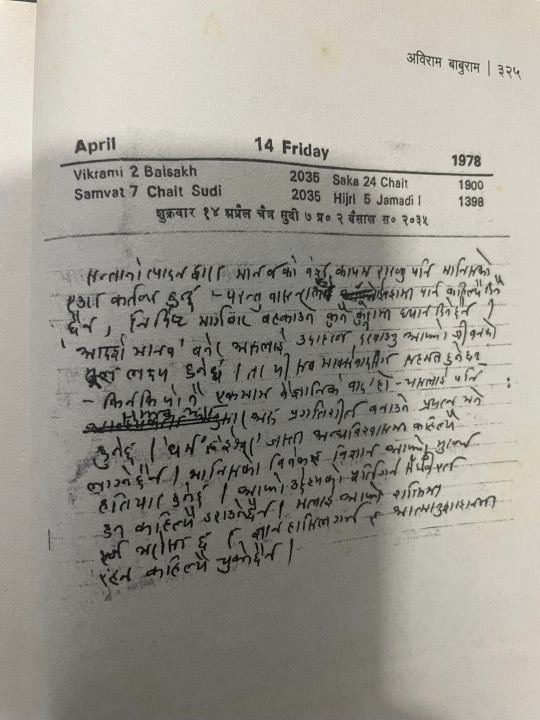 अविराम बाबुराम | ३२५
April 14 Friday 1978
Vikrami 2 Baisakh 2035 Saka 24 Chait 1900
Samvat 7 Chait Sudi 2035 Hijri 5 Jamadi I 1398
शुक्रवार १४ अप्रैल चैत्र सुदी ७ प्र० २ वैसाख स० २०३५
सन्तानोत्पादन द्वारा मानवको वंश कायम राख्नु पनि मानिसको
एउटा कर्तव्य हुन्छ - परन्तु वासना पनि कहिल्यै
छैन, निर्दिष्ट मार्गबाट बहकाउने कुनै कुरामा ध्यान दिनेछैन ।
'आदर्श मानव' बनेर अरुलाई उदाहरण देखाउनु आफ्नो जीवनको
लक्ष्य हुनेछ । सहमत हुनेछ
- किनकि यो नै एकमात्र वैज्ञानिक वाद हो - यसलाई पनि
अझ प्रगतिशील बनाउने प्रयत्न गर्ने
हुनेछु । 'धर्म' 'ईश्वर' जस्ता अन्धविश्वासमा कहिल्यै
लाग्नेछैन । मानिसको विवेक र विज्ञान आफ्नो मुख्य
हतियार हुनेछ । आफ्नो उद्देश्यको प्राप्तिगर्न संघर्षरत
हुन कहिल्यै डराउनेछैन । मलाई आफ्नो शक्तिमा
पूर्ण भरोसा छ । ज्ञान हासिल गर्न र
रहन कहिल्यै चुक्नेछैन ।